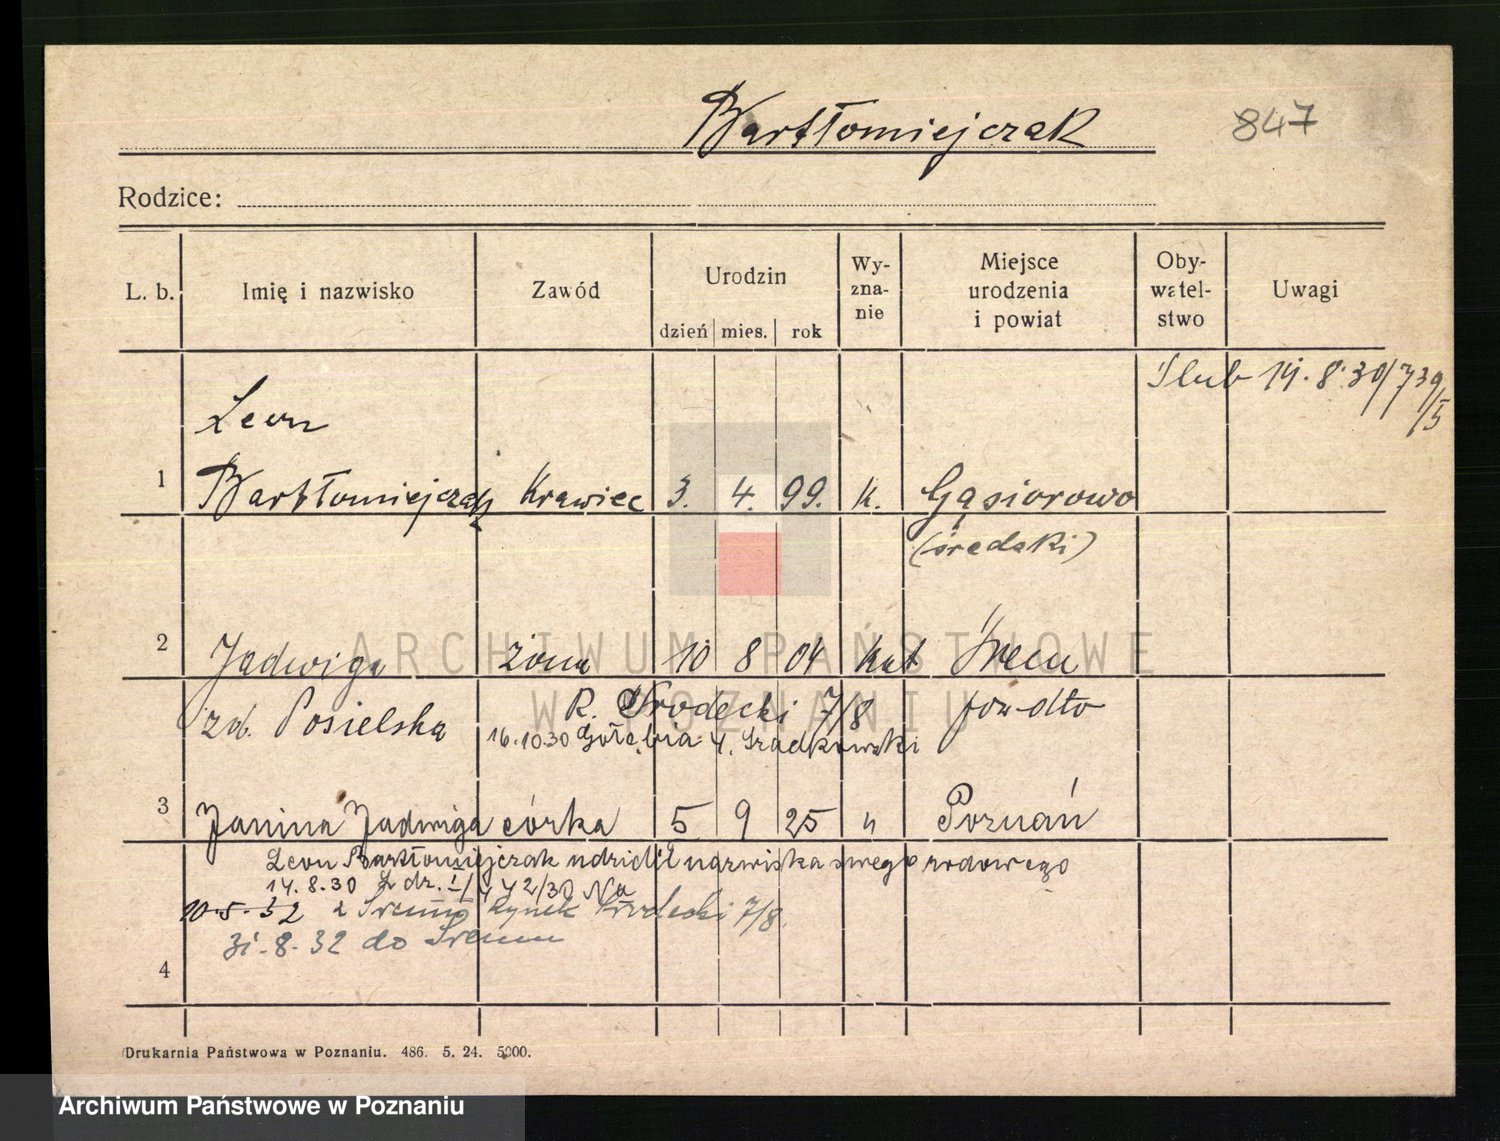 Bartłomiejczak 847
Rodzice:
L. b. Imię i nazwisko Zawód Urodzin dzień mies. rok Wy-zna-nie Miejsce urodzenia i powiat Oby-watel-stwo Uwagi
Ślub 14. 8. 30/739/I
Leon
1 Bartłomiejczak Krawiec 3. 4. 99. K. Gąsiorowo
(średzki)
2 Jadwiga żona 10 8 04 kat Śrem
zd. Posielska R. Grodecki 7/8
16.10.30 Gołębia 4. Szadkowski
3 Janina Jadwiga córka 5 9 25 " Poznań
Leon Bartłomiejczak udzielił nazwiska swego rodowego
14. 8. 30 L dz. I/442/30 Na
10.5.32 z Śremu Rynek Grodecki 7/8
31.8.32 do Śremu
4
Drukarnia Państwowa w Poznaniu. 486. 5. 24. 5000.
ARCHIWUM PAŃSTWOWE
W POZNANIU
Archiwum Państwowe w Poznaniu